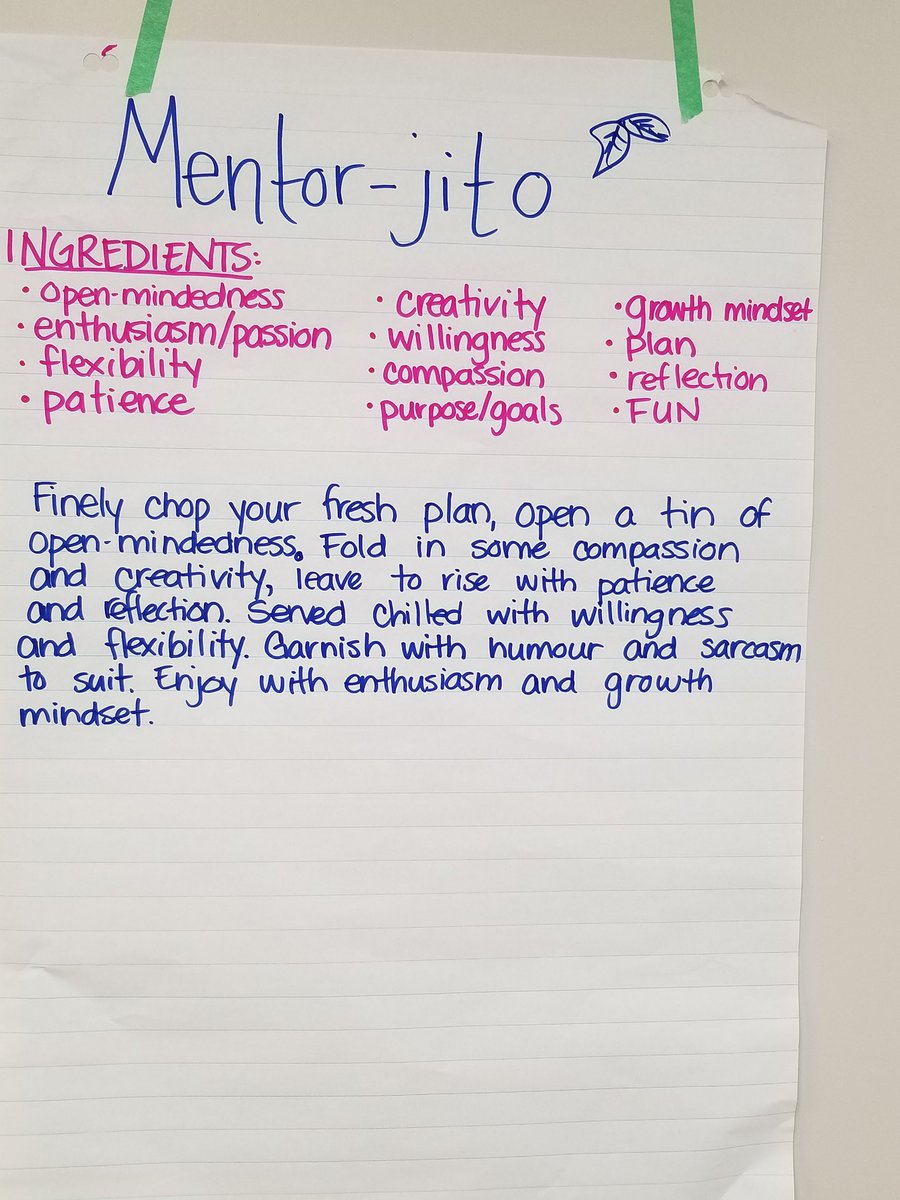 Mentor-jito
INGREDIENTS:
• open-mindedness
• enthusiasm/passion
• flexibility
• patience
• creativity
• willingness
• compassion
• purpose/goals
• growth mindset
• plan
• reflection
• FUN
Finely chop your fresh plan, open a tin of
open-mindedness. Fold in some compassion
and creativity, leave to rise with patience
and reflection. Served chilled with willingness
and flexibility. Garnish with humour and sarcasm
to suit. Enjoy with enthusiasm and growth
mindset.